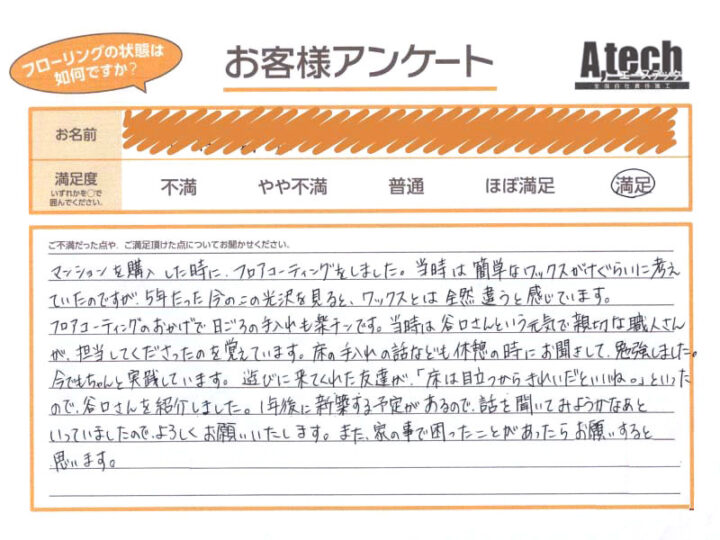 フローリングの状態は
如何ですか?
お客様アンケート
A,tech
エーステック
全国自社責任施工
お名前
満足度
いずれかを○で
囲んでください。
不満 やや不満 普通 ほぼ満足 満足
ご不満だった点や、ご満足頂けた点についてお聞かせください。
マンションを購入した時に、フロアコーティングをしました。当時は簡単なワックスがけぐらいに考え
ていたのですが、5年たった今のこの光沢を見ると、ワックスとは全然違うと感じています。
フロアコーティングのおかげで日ごろの手入れも楽チンです。当時は谷口さんという元気で親切な職人さん
が、担当してくださったのを覚えています。床の手入れの話なども休憩の時にお聞きして、勉強しました。
今でもちゃんと実践しています。遊びに来てくれた友達が、「床は目立つからきれいだといいね。」といった
ので、谷口さんを紹介しました。1年後に新築する予定があるので、話を聞いてみようかなあと
いっていましたので、よろしくお願いいたします。また、家の事で困ったことがあったらお願いすると
思います。